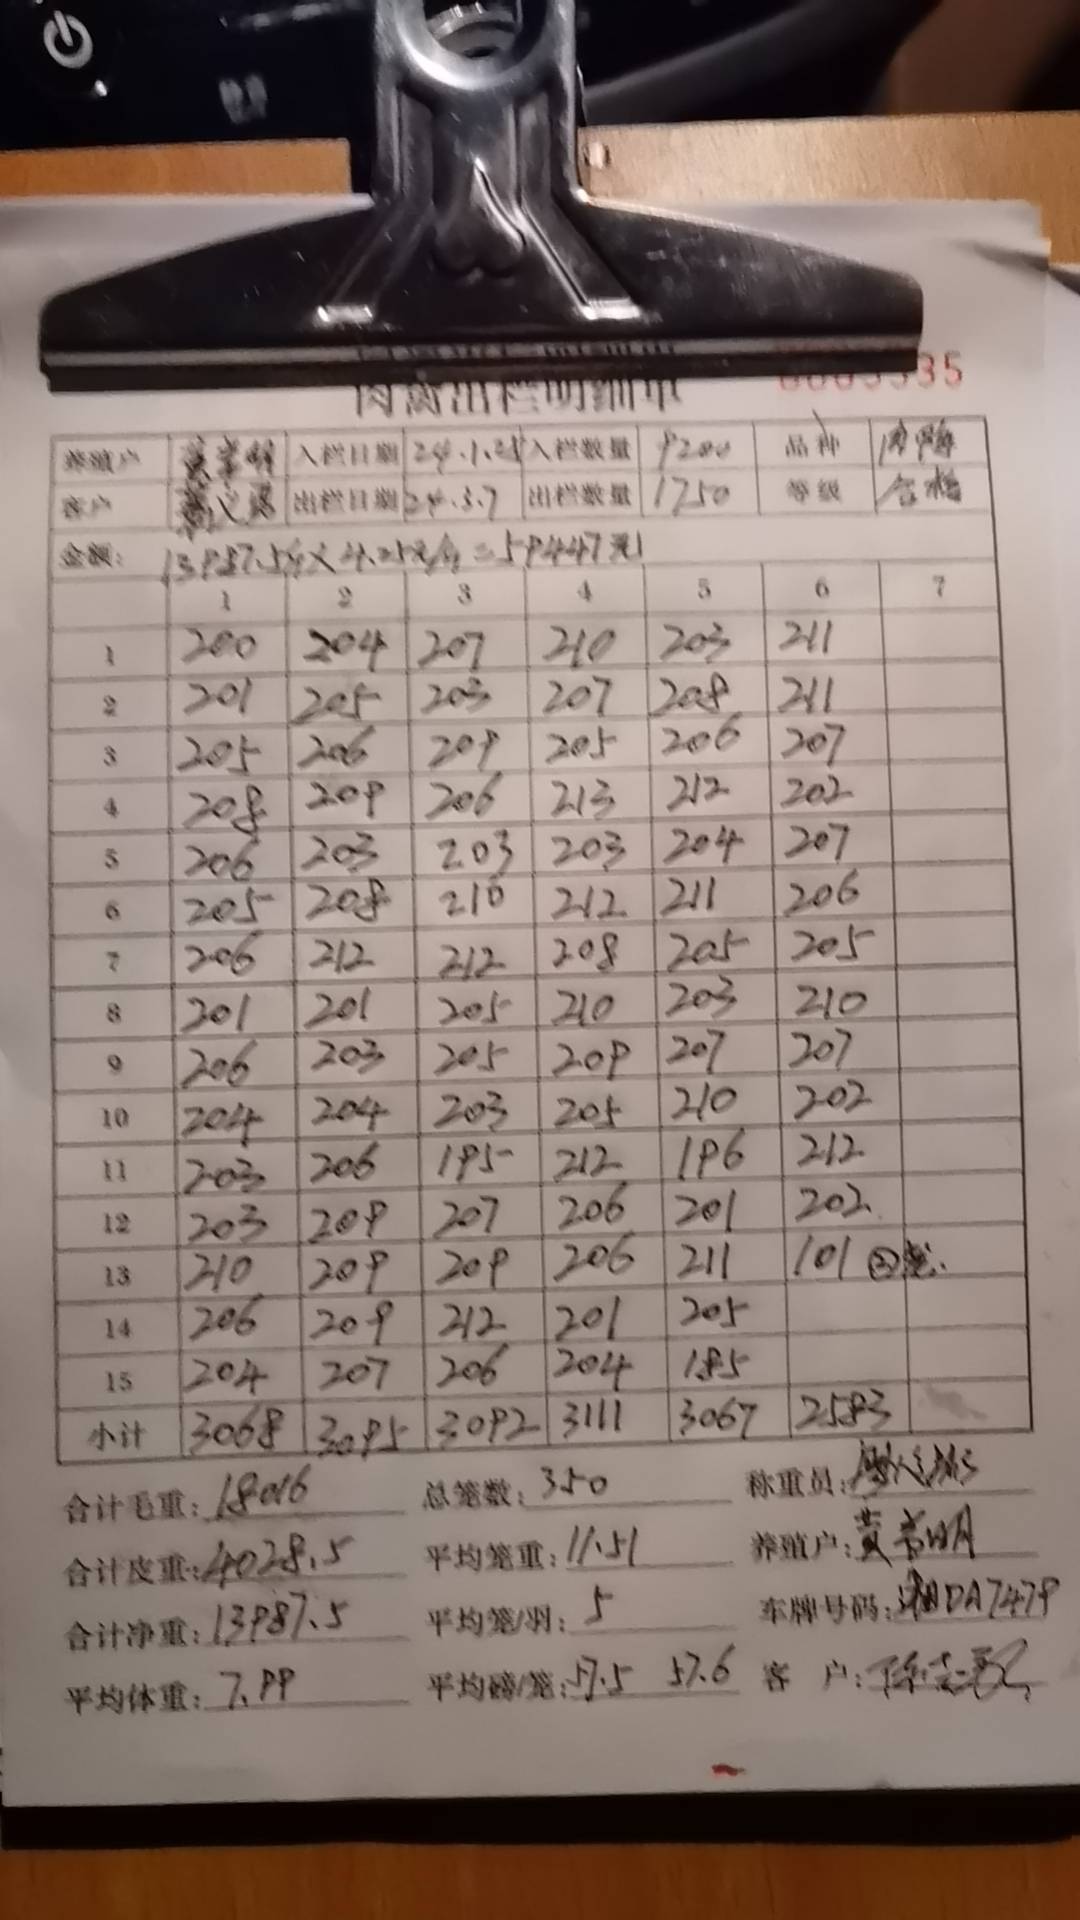 肉禽出栏明细单 35
养殖户 黄常明 入栏日期 24.1.28 入栏数量 9200 品种 肉鸭
客户 出栏日期 24.3.7 出栏数量 1750 等级 合格
金额: 13987.5斤×4.25元/斤=59447元
1 2 3 4 5 6 7
1 200 204 207 210 203 211
2 201 205 203 207 208 211
3 205 206 209 205 206 207
4 208 209 206 213 212 202
5 206 203 203 203 204 207
6 205 208 210 212 211 206
7 206 212 212 208 205 205
8 201 201 205 210 203 210
9 206 203 205 209 207 207
10 204 204 203 205 210 202
11 203 206 195 212 196 212
12 203 209 207 206 201 202
13 210 209 209 206 211 101
14 206 209 212 201 205
15 204 207 206 204 185
小计 3068 3095 3092 3111 3067 2583
合计毛重: 18016 总笼数: 350 称重员:
合计皮重: 4028.5 平均笼重: 11.51 养殖户: 黄常明
合计净重: 13987.5 平均笼/羽: 5 车牌号码: 湘DA7479
平均体重: 7.99 平均磅/笼: 57.5 57.6 客 户: